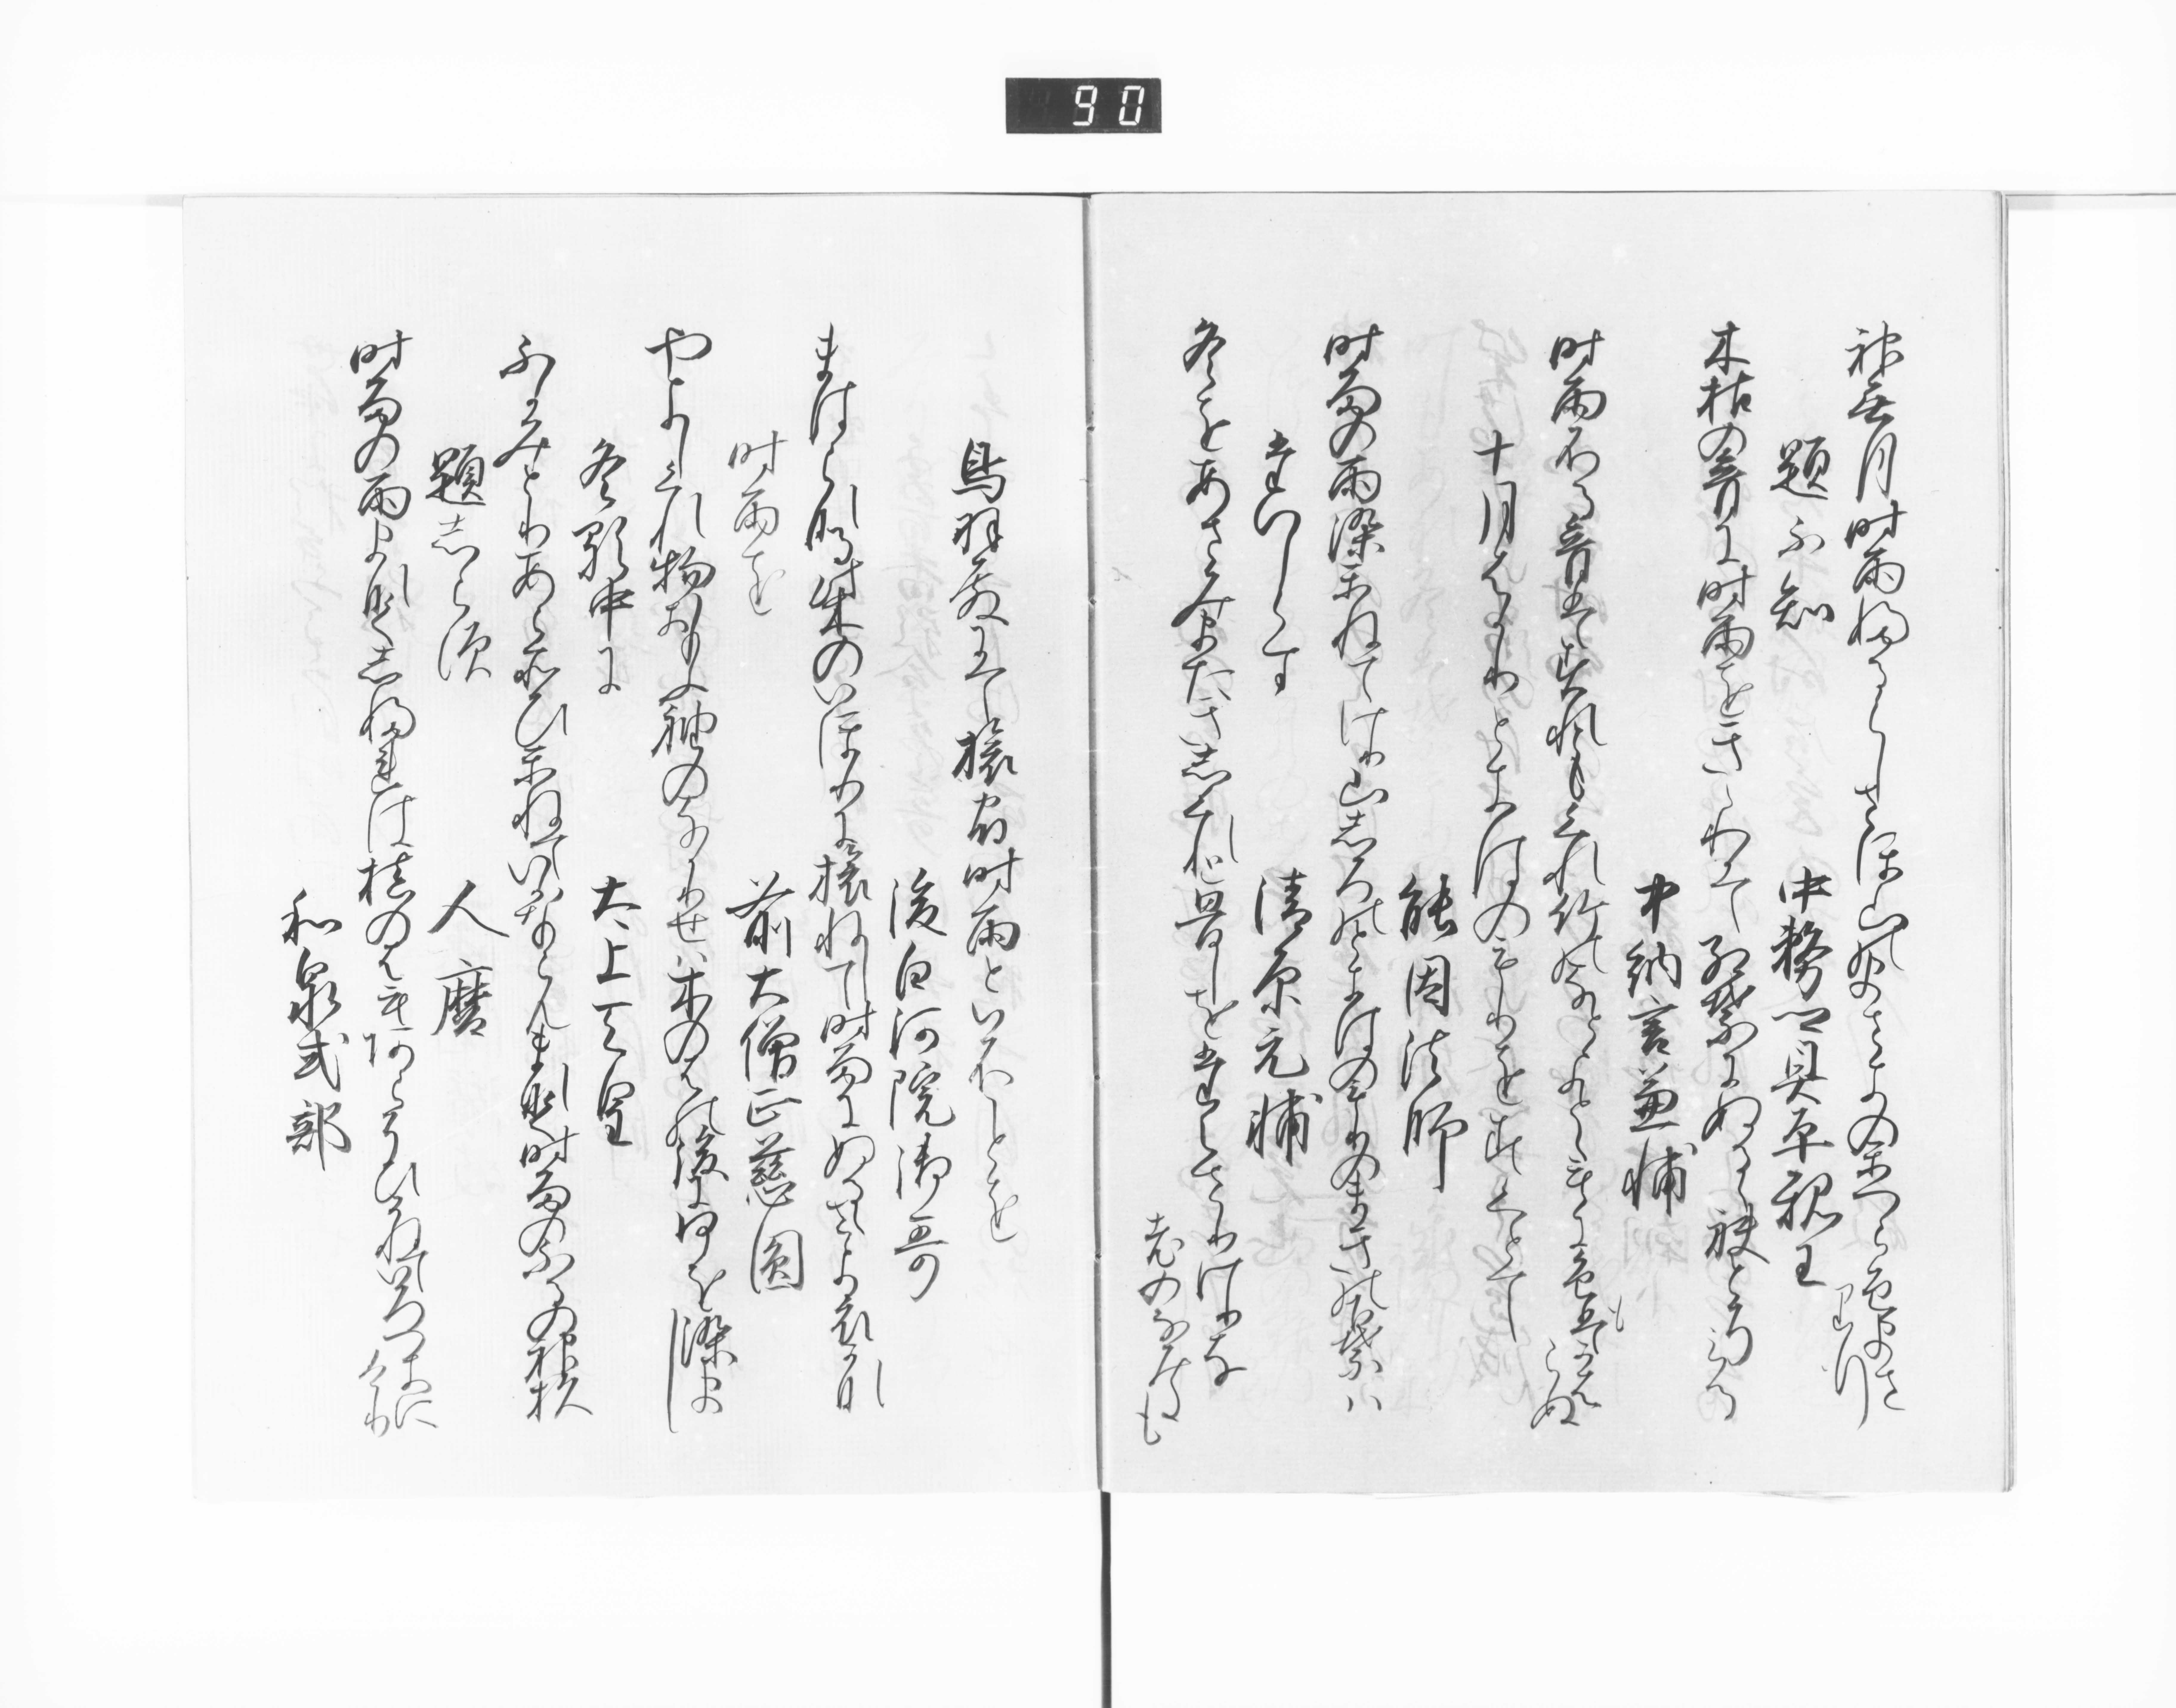 神無月時雨ふるらしさほ山のまさきのかつら色まさ
りゆく
題不知　中務卿具平親王
木枯の音に時雨をきゝわかて紅葉にぬるゝ袂とそ見る
中納言兼輔
時雨ふる音はすれ共くれ竹のなとよとゝもに色もかは
らぬ
十月はかりときはのもりをすくとて
能因法師
時雨の雨染かねてけり山しろのときはのもりのまきの下葉ハ
題しらす　清原元輔
冬をあさみまたきしくれと思しをたえさりけりな
老のなみたも
鳥羽殿にて旅宿時雨といふことを
後白河院御哥
まはらなる柴のいほりに旅ねして時雨にぬるゝさよ衣かな
時雨を　前大僧正慈圓
やよしくれ物おもふ袖のなかりせハ木のはの後に何を染まし
冬歌中に　太上天皇
ふかみとりあらそひかねていかならんまなく時雨のふるの神杉
題しらす　人麿
時雨の雨まなくしふれは槙のはもあらそひかねていろつきに
けり
和泉式部